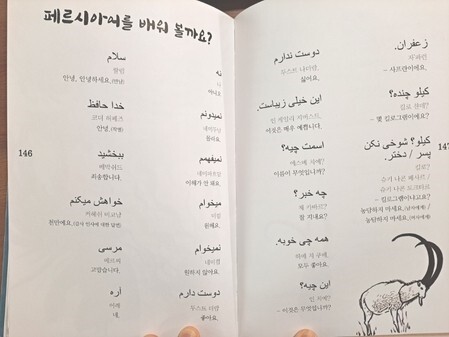 페르시아어를 배워 볼까요?
سلام
살럼
안녕, 안녕하세요.(만남)
خدا حافظ
코더 허페즈
안녕.(작별)
ببخشید
베백쉬드
죄송합니다.
خواهش میکنم
카헤쉬 미코남
천만에요.(감사 인사에 대한 답변)
مرسی
메르씨
고맙습니다.
آره
어레
네.
146
نه
나
아니요
نمیدونم
몰라요.
نمیفهمم
이해가 안 돼요.
میخوام
원해요.
نمیخوام
원하지 않아요.
دوست دارم
두스트 다람
좋아요.
دوست ندارم
두스트 나다람.
싫어요.
این خیلی زیباست.
인 케일리 지바스트.
이것은 매우 예쁩니다.
اسمت چیه؟
에스메 치예?
이름이 무엇입니까?
چه خبر؟
체 카바르?
잘 지내요?
همه چی خوبه.
모두 좋아요.
این چیه؟
인 치예?
– 이것은 무엇입니까?
زعفران.
자파란
– 사프란이에요.
کیلو چنده؟
킬로 찬데?
– 몇 킬로그램이에요?
کیلو؟ شوخی نکن
پسر / دختر.
킬로?
– 킬로그램이냐고요?
농담하지 마세요.(남자에게)
농담하지 마세요.(여자에게)
147